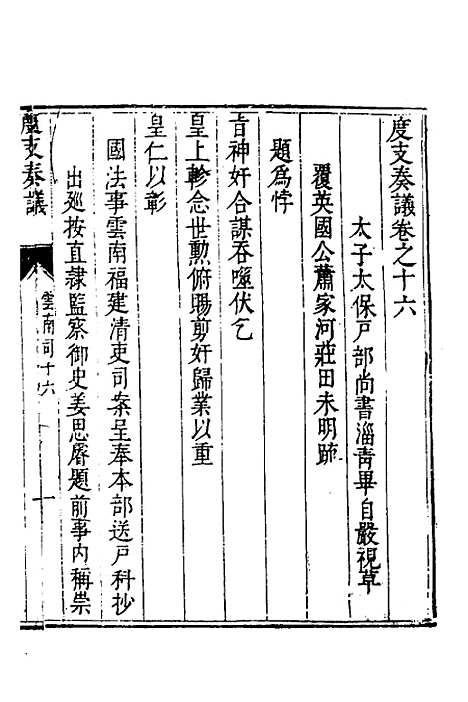 度支奏議卷之十六
太子太保戶部尚書淄青畢自嚴視草
覆英國公蕭家河莊田未明疏
題為悖
旨神奸合謀吞噬伏乞
皇上軫念世勲俯賜剪奸歸業以重
皇仁以彰
國法事雲南福建清吏司案呈奉本部送戶科抄
出廵按直隸監察御史姜思睿題前事內稱崇
度支奏議
雲南司十六
一